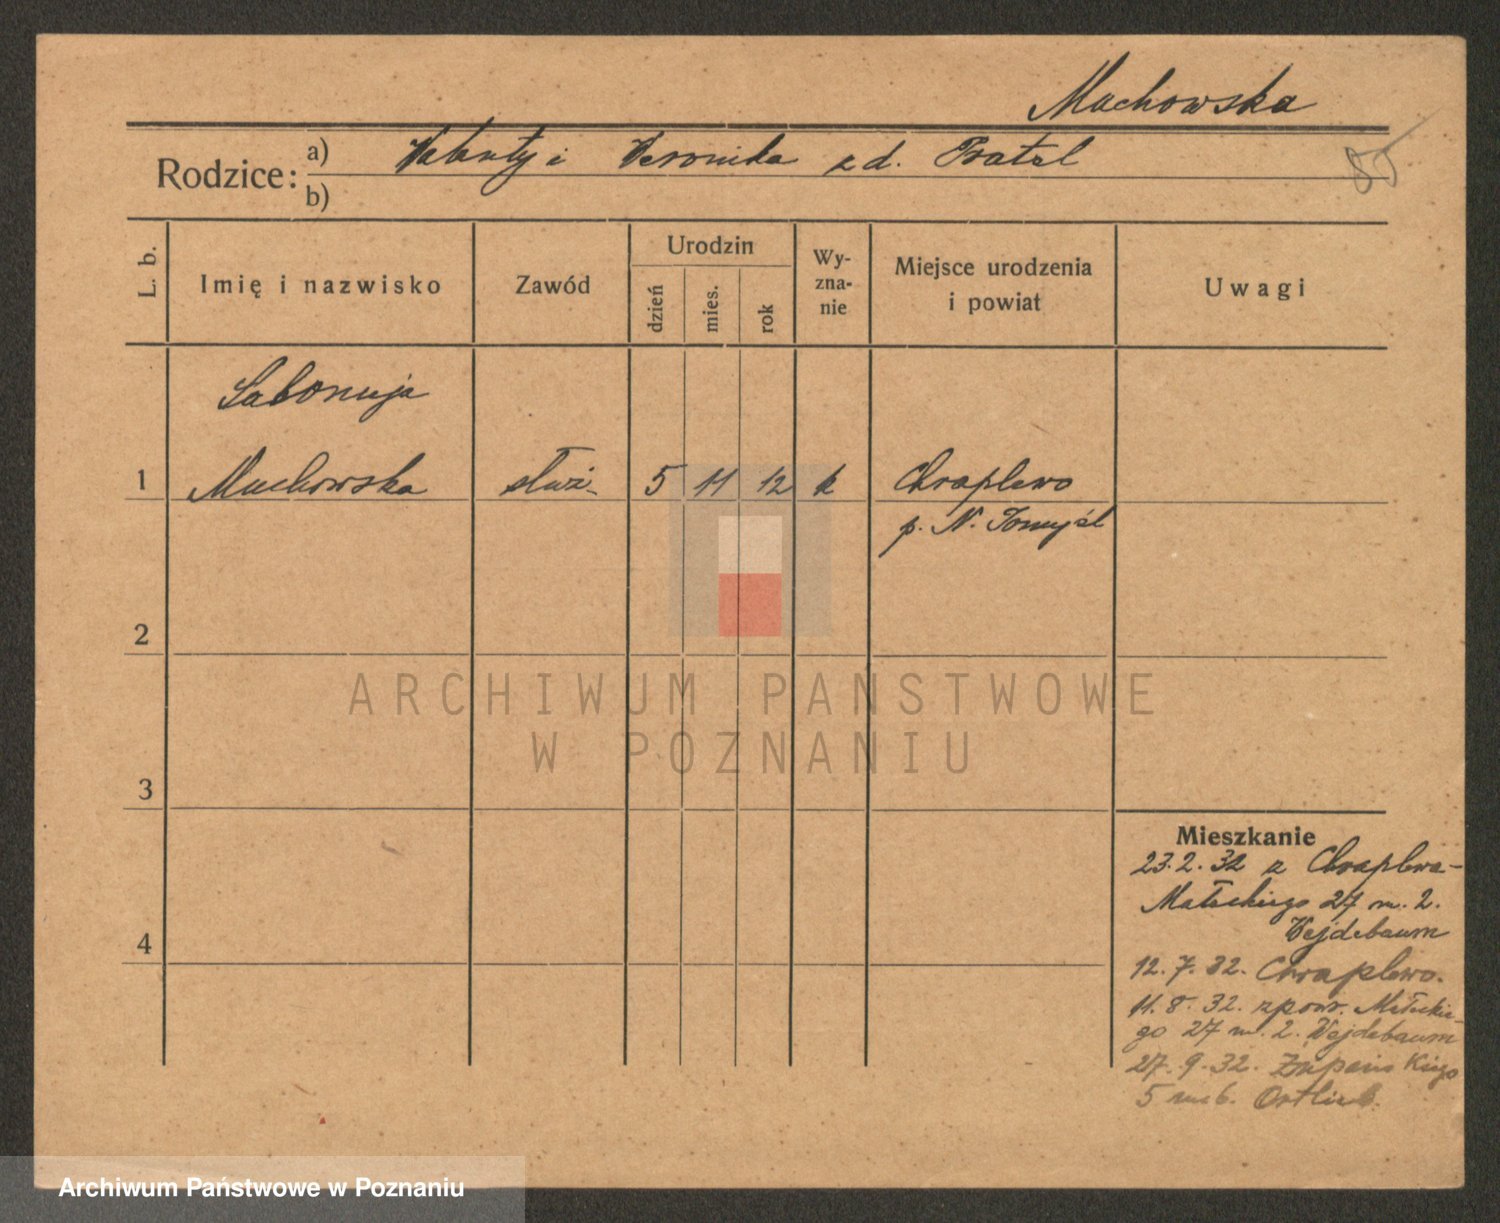 Muchowska
Rodzice: a) Walenty i Weronika z d. Pratel
b)
85
L. b.
Imię i nazwisko
Zawód
Urodzin
dzień
mies.
rok
Wy-
zna-
nie
Miejsce urodzenia
i powiat
Uwagi
Salomeja
1 Muchowska służ. 5 11 12 k Chraplewo
p. N. Tomyśl
2
3
4
ARCHIWUM PAŃSTWOWE
W POZNANIU
Mieszkanie
23.2.32 z Chraplewa-
Małeckiego 27 m. 2.
Wejdebaum
12.7.32. Chraplewo.
11.8.32. zpow. Małeckie-
go 27 m. 2. Wejdebaum
27.9.32. Żupańskiego
5 m 6. Ortlieb.
Archiwum Państwowe w Poznaniu